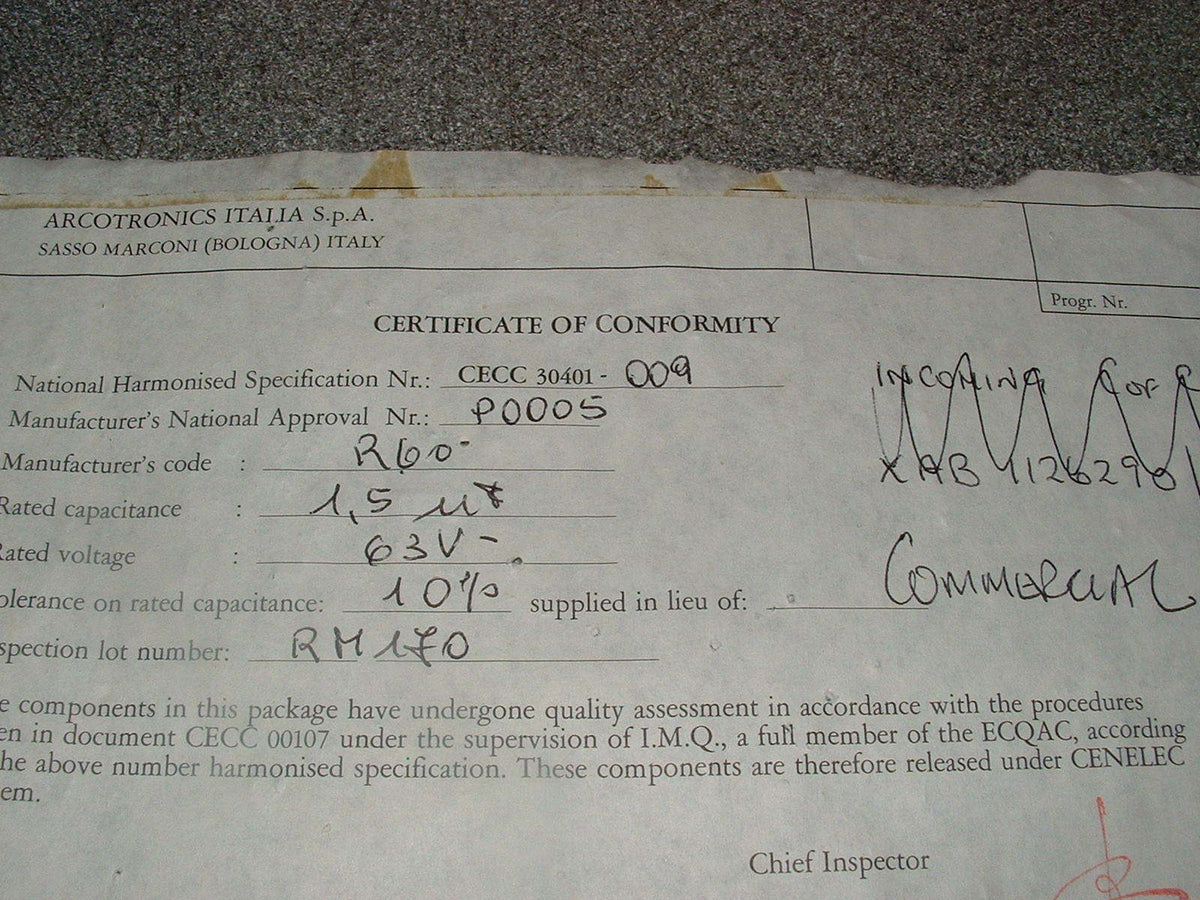 ARCOTRONICS ITALIA S.p.A.
SASSO MARCONI (BOLOGNA) ITALY
Progr. Nr.
CERTIFICATE OF CONFORMITY
National Harmonised Specification Nr.: CECC 30401 - 009
Manufacturer's National Approval Nr.: P0005
Manufacturer's code : R60-
Rated capacitance : 1,5 µF
Rated voltage : 63V-
olerance on rated capacitance: 10% supplied in lieu of:
spection lot number: RM170
INCOMING
COMMERCIAL
e components in this package have undergone quality assessment in accordance with the procedures
en in document CECC 00107 under the supervision of I.M.Q., a full member of the ECQAC, according
he above number harmonised specification. These components are therefore released under CENELEC
em.
Chief Inspector